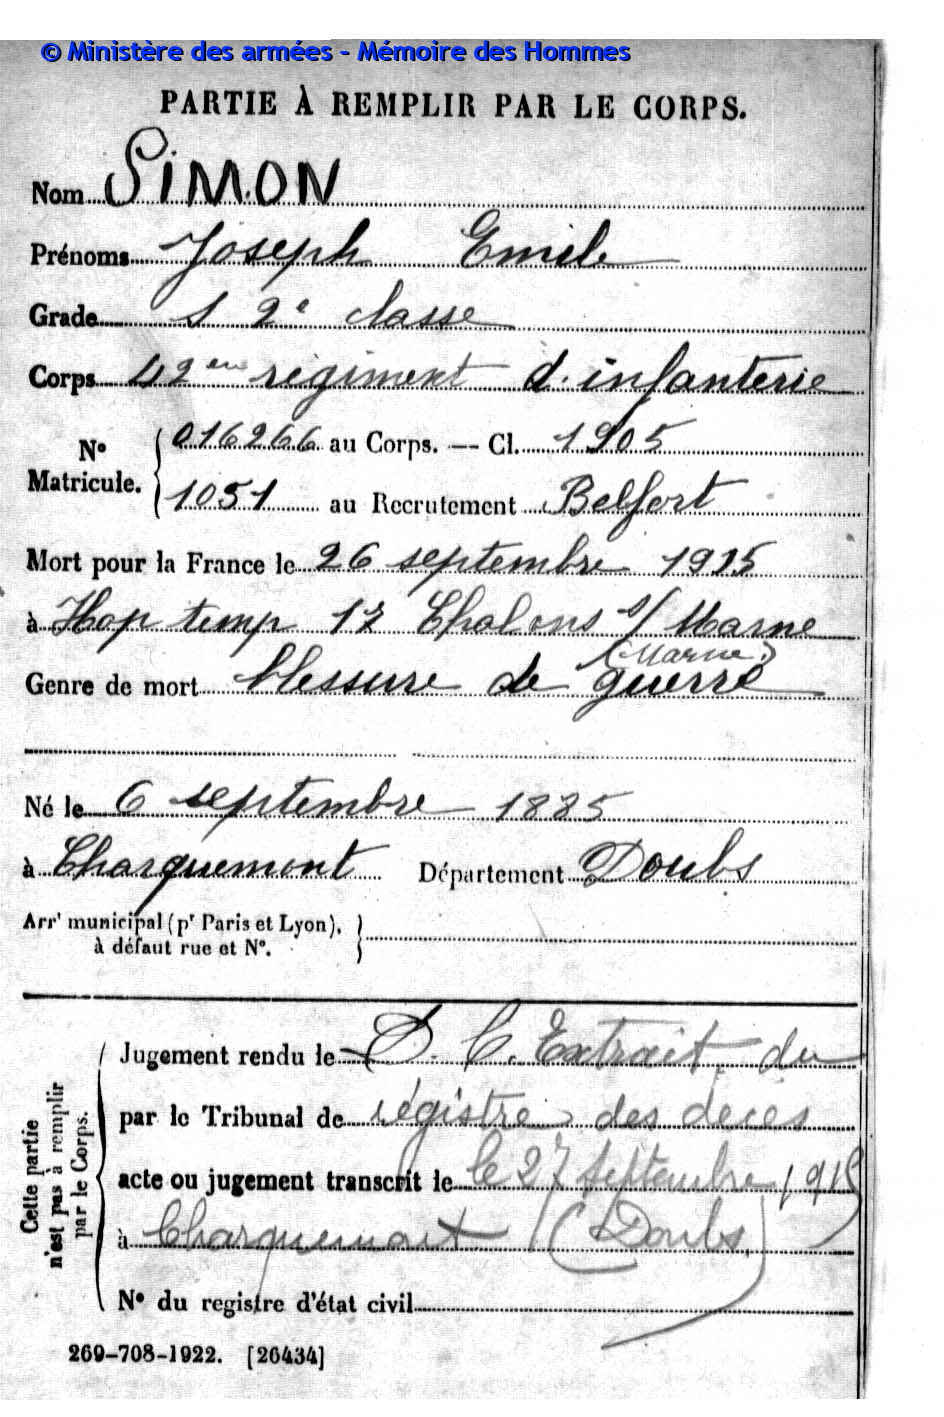 © Ministère des armées - Mémoire des Hommes
PARTIE À REMPLIR PAR LE CORPS.
Nom SIMON
Prénoms Joseph Emile
Grade S 2e classe
Corps 42em régiment d'infanterie
N° Matricule. 016266 au Corps. — Cl. 1905
1051 au Recrutement Belfort
Mort pour la France le 26 septembre 1915
à Hop temp 12 Chalons s/ Marne
(Marne)
Genre de mort blessure de guerre
Né le 6 septembre 1885
à Charquemont Département Doubs
Arrt municipal (pr Paris et Lyon),
à défaut rue et N°.
Cette partie n'est pas à remplir par le Corps.
Jugement rendu le D. C. Extrait du
par le Tribunal de régistre des décès
acte ou jugement transcrit le le 27 septembre 1915
à Charquemont (Doubs)
N° du registre d'état civil
269-708-1922. [26434]